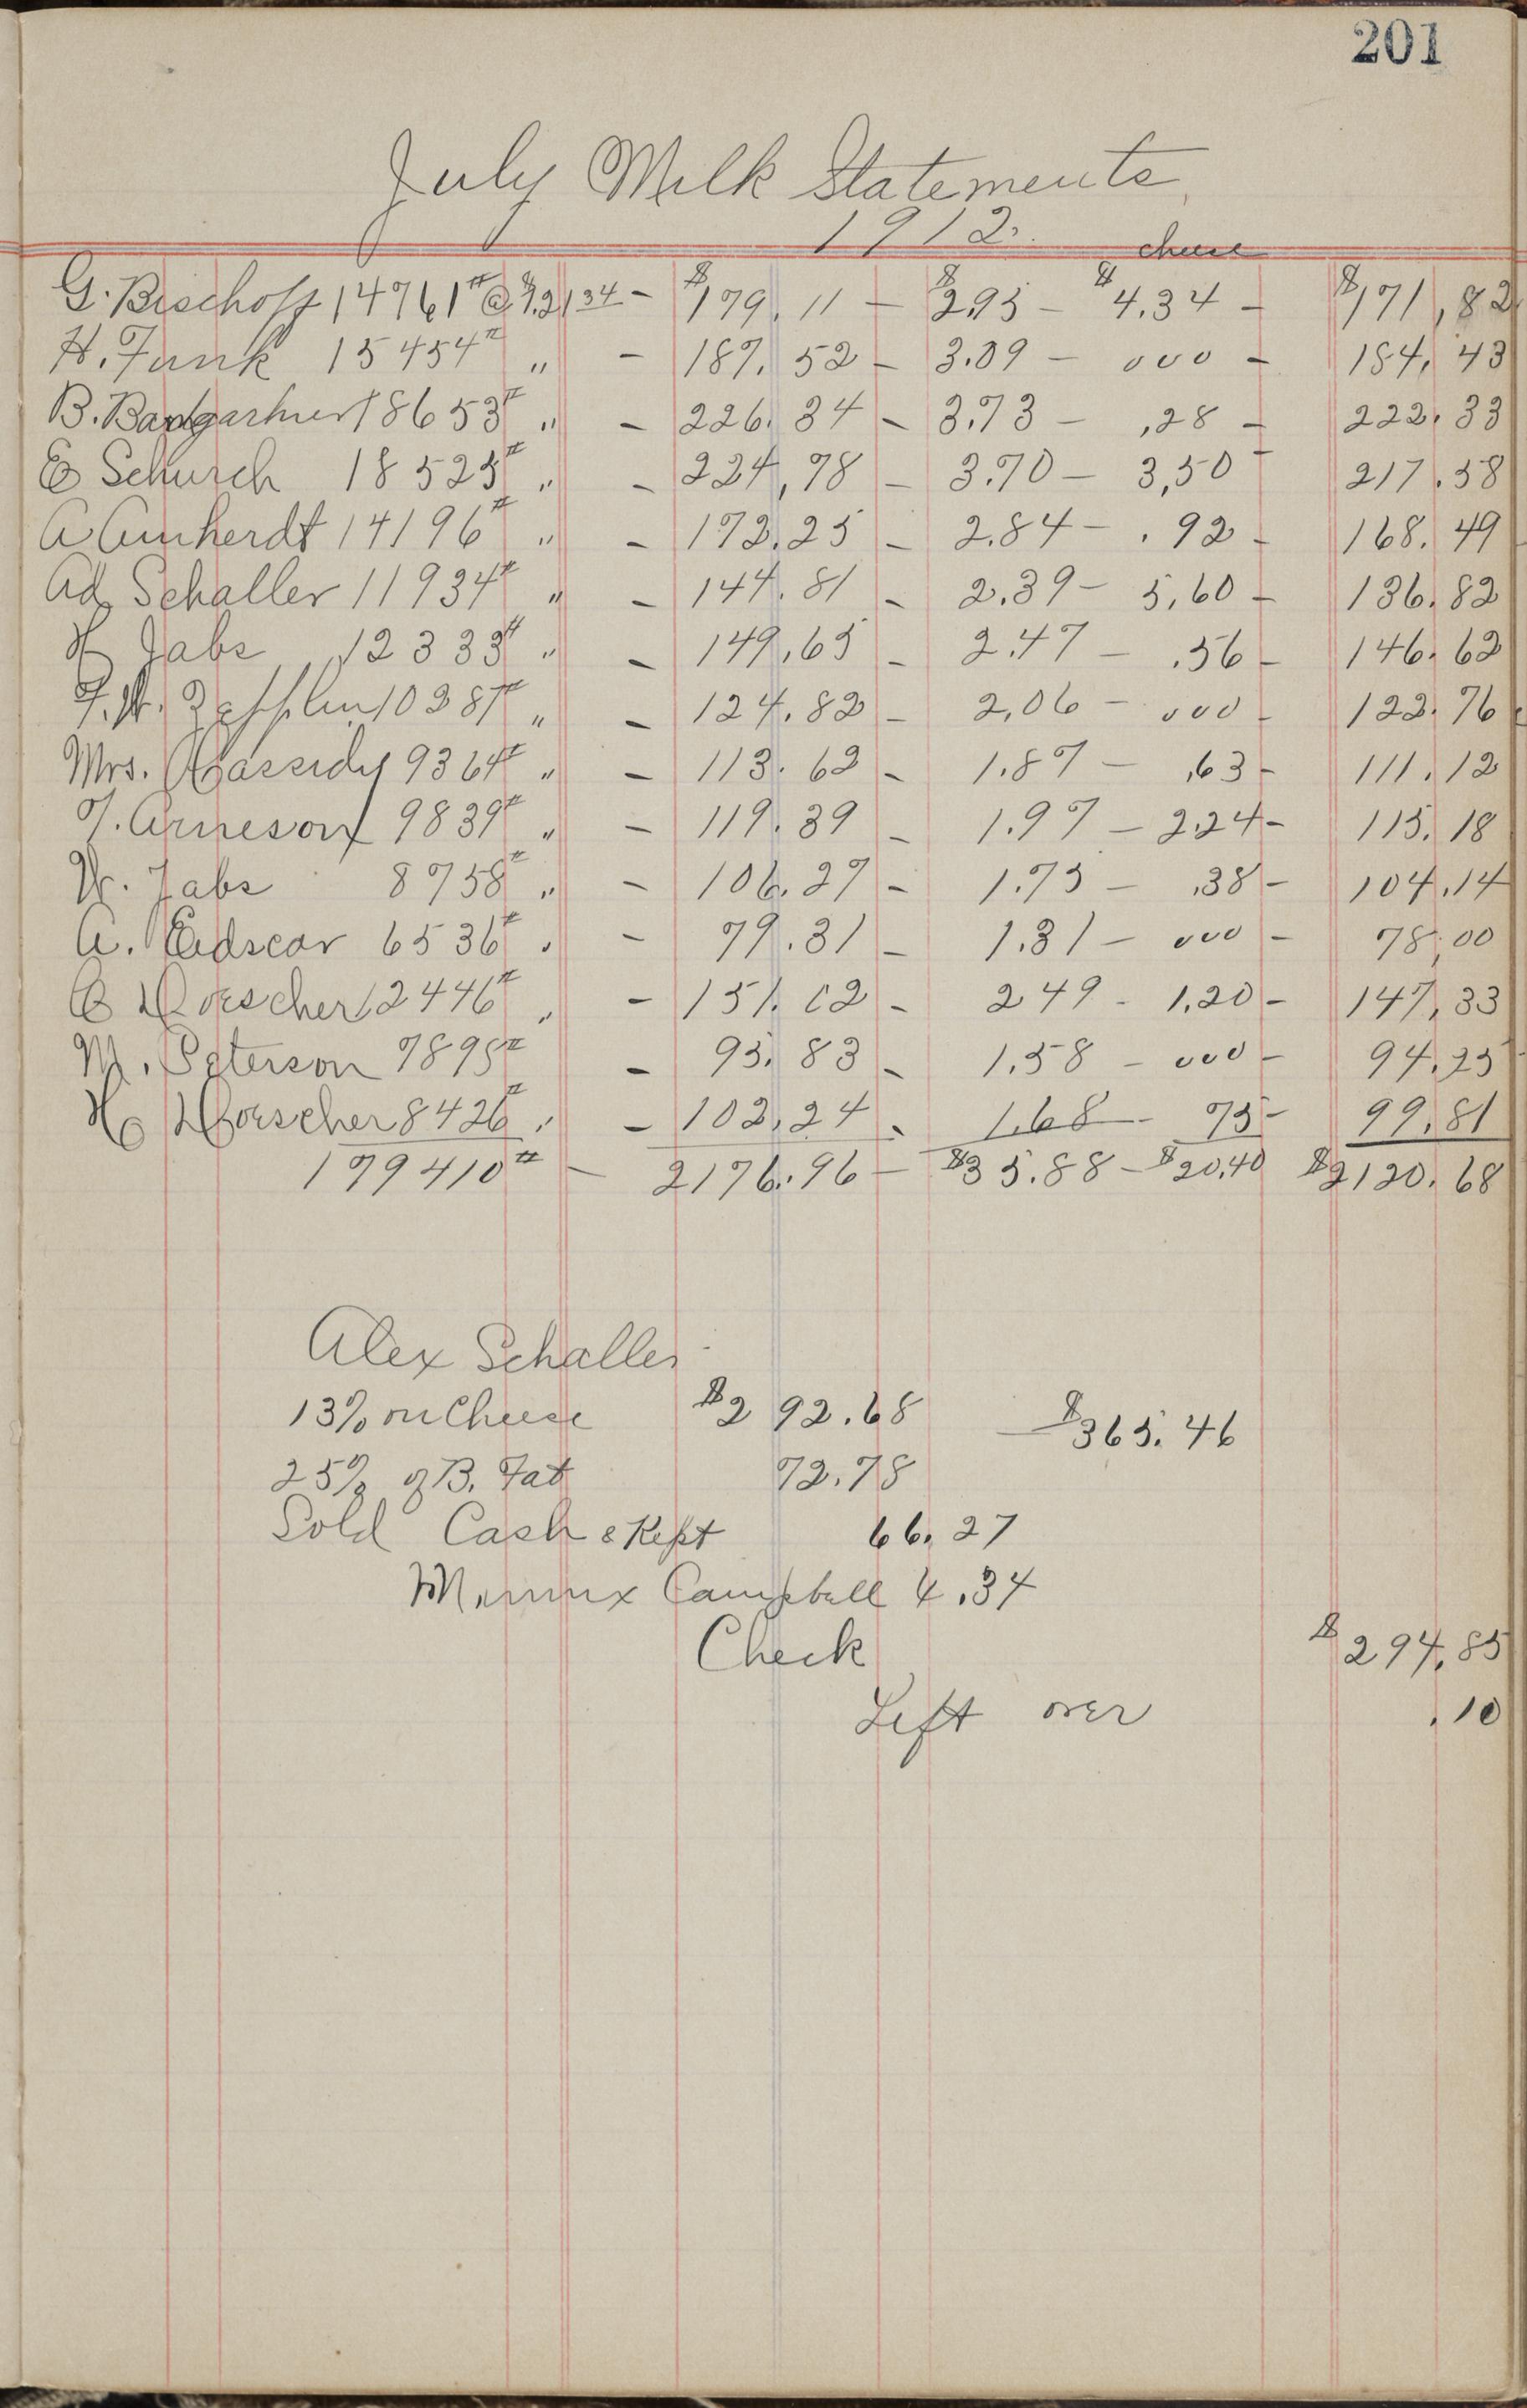 201
July Milk Statements
1912.
cheese
G. Bischoff 14761# @ $1.2134 - $179.11 - $2.95 - $4.34 - $171.82
H. Funk 15454# " - 187.52 - 3.09 - 000 - 184.43
B. 18653# " - 226.34 - 3.73 - .28 - 222.33
E Schurch 18525# " - 224.78 - 3.70 - 3.50 - 217.58
A Amherdt 14196# " - 172.25 - 2.84 - .92 - 168.49
Ad Schaller 11934# " - 144.81 - 2.39 - 5.60 - 136.82
H Jabs 12333# " - 149.65 - 2.47 - .56 - 146.62
F.W. Zafflin 10287# " - 124.82 - 2.06 - 000 - 122.76
Mrs. Cassidy 9364# " - 113.62 - 1.87 - .63 - 111.12
T. Arneson 9839# " - 119.39 - 1.97 - 2.24 - 115.18
W. Jabs 8758# " - 106.27 - 1.75 - .38 - 104.14
A. Edscor 6536# " - 79.31 - 1.31 - 000 - 78.00
C Doescher 12446# " - 151.02 - 2 49 - 1.20 - 147.33
M. Peterson 7898# - 95.83 - 1.58 - 000 - 94.25
H Doescher 8426# " - 102.24 - 1.68 - 75 - 99.81
179410# - 2176.96 - $35.88 - $20.40 $2120.68
Alex Schaller
13% on Cheese $292.68 - $365.46
25% of B. Fat 72.78
Sold Cash & Kept 66.27
Campbell 4.34
Check $294.85
Left over .10